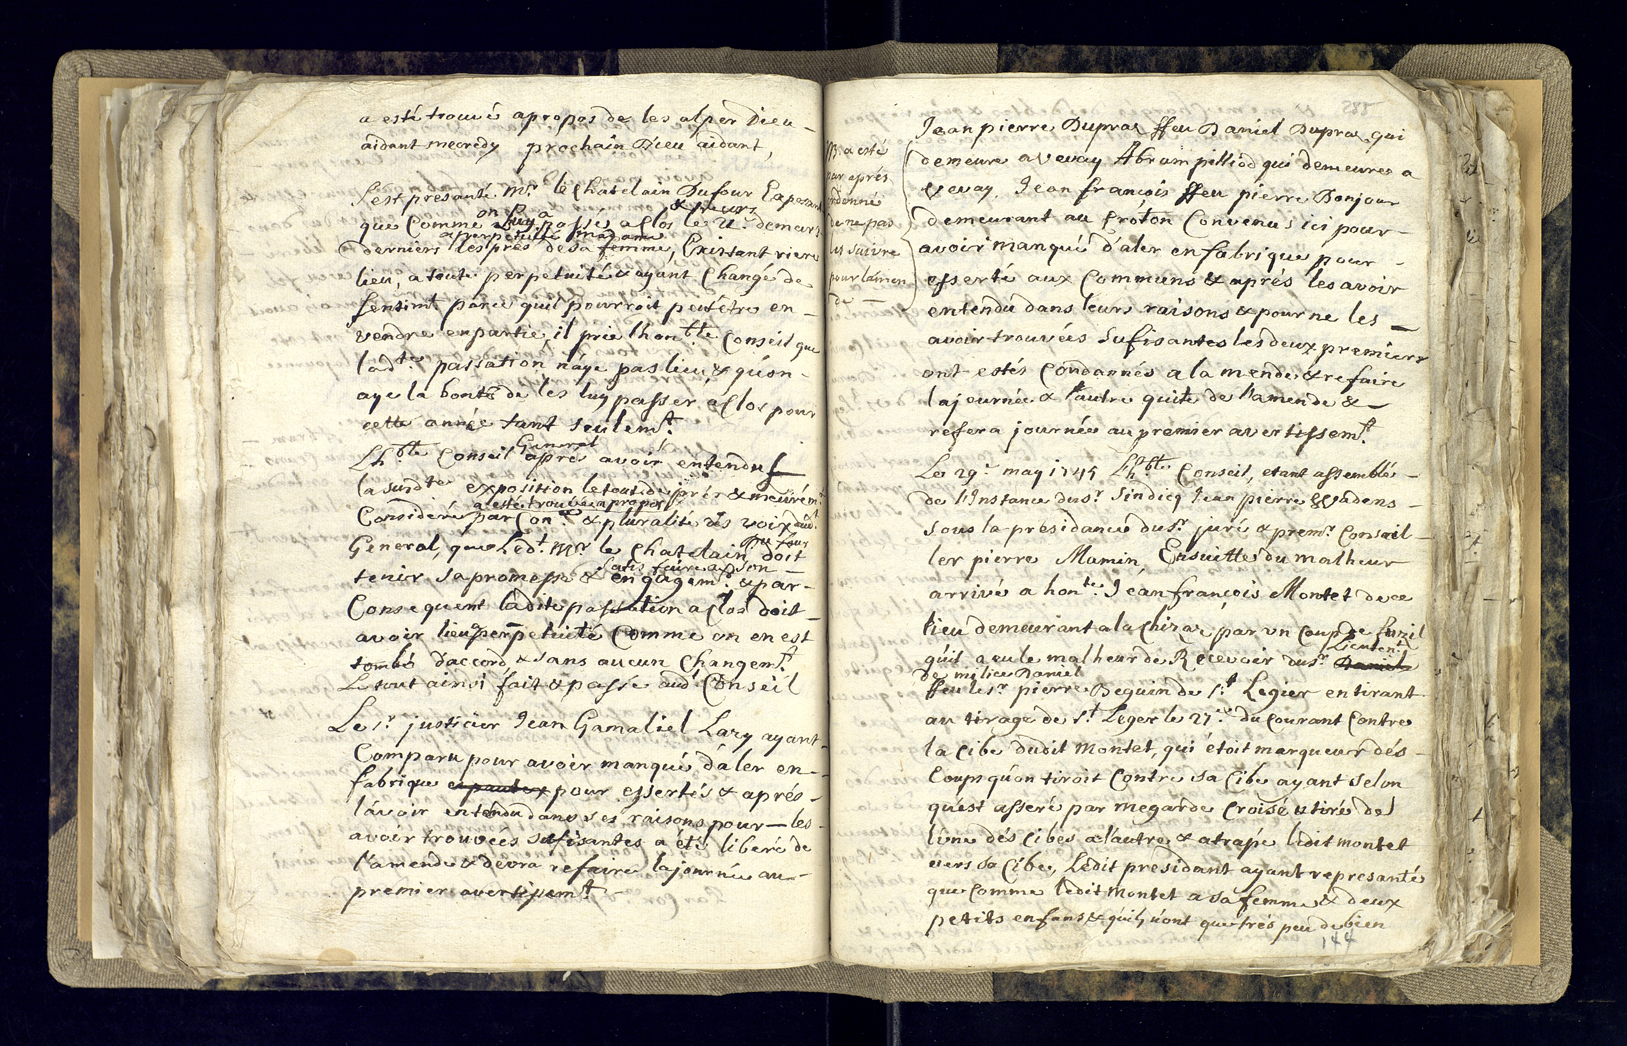 a esté trouvé apropos de les alper Dieu -
aidant mecredy prochain Dieu aidant,
S'est presanté Mr. le Chatelain Dufour Exposant
que Comme on luy a passé a Clos le
a perpetuité
derniers les prés de sa femme, Existant riere
lieu, a toute perpetuité & ayant Changé de
sentimt parce quil pourroit peut étre en -
vendre en partie, il prie l'honble Conseil que
ladte. passation n'aye pas lieu, & qu'on -
aye la bonté de les luy passer a Clos pour
cette année tant seulemt.
Lhble Conseil General aprés avoir entendu
la susdte exposition le tout de prés & meurémt
a esté trouvé a propos
Consideré par & pluralité des voix
General, que Ledt. Mr le Chatelain Dufour doit
tenir sa promesse & satisfaire a son engagemt. & par -
Consequent ladite passation a Clos doit
avoir lieu perpetuité Comme on en est
tombé d'accord & sans aucun Changemt.
Le tout ainsi fait & passé aud. Conseil
Le Sr. justicier Jean Gamaliel Lary ayant
Comparu pour avoir manqué d'aler en -
fabrique pour essertés & aprés -
l'avoir entendu dans ses raisons pour les
avoir trouvées sufisantes a été liberé de
l'amende & devra refaire la journée au -
premier avertissemt. -
a esté
par aprés
ordonné
de ne pas
les suivre
pour lamen
de
Jean pierre Dupraz ffeu Daniel Dupraz qui
demeure a Vevay Abram pilliod qui demeure a
Vevay, Jean françois ffeu pierre Bonjour
demeurant au Convenus ici pour -
avoir manqué d'aler en fabrique pour -
esserté aux Communs & aprés les avoir
entendu dans leurs raisons & pour ne les -
avoir trouvées sufisantes les deux premiers
ont estés Condannés a la mende & refaire
la journée & l'autre quite de l'amende & -
refera journée au premier avertissemt.
Le 29e. may 1745 Lhble Conseil, etant assemblé -
de l'Instance du sr. Sindicq Jean pierre
sous la presidance du sr. juré & premr. Conseil -
ler pierre Mamin, Ensuitte du malheur
arrivé a honte. Jean françois Montet de ce
lieu demeurant a la Chizaz, par un Coup de fuzil
quil a eu le malheur de Recevoir du sr. Lieutent
de milice Daniel
ffeu le sr. pierre Deguin de St. Legier en tirant
au tirage de St. Leger le 27e. du Courant Contre
la Cibe dudit Montet, qui étoit marqueur dés -
Coups qu'on tiroit Contre sa Cibe ayant selon
quest asseré par megarde Croisé & tiré de
l'une dés Cibes a l'autre & atrapé ledit montet
vers sa Cibe, Ledit presidant ayant represanté
que Comme ledit Montet a sa femme & deux
petits enfans & quils n'ont que très peu de bien
144